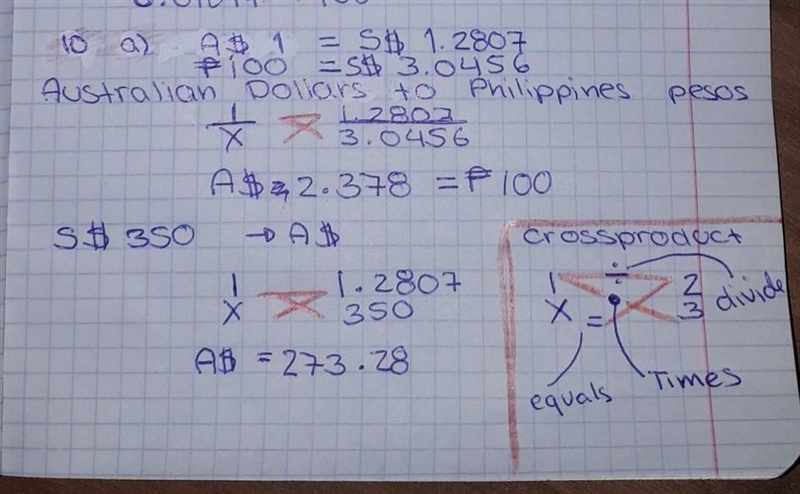 10 a) A$ 1 = S$ 1.2807
₱100 = S$ 3.0456
Australian Dollars to Philippines pesos
1 1.2807
X 3.0456
A$ 2.378 = ₱100
S$ 350 → A$
1 1.2807
X 350
A$ = 273.28
crossproduct
1 ÷ 2
X = • 3
divide
equals
Times